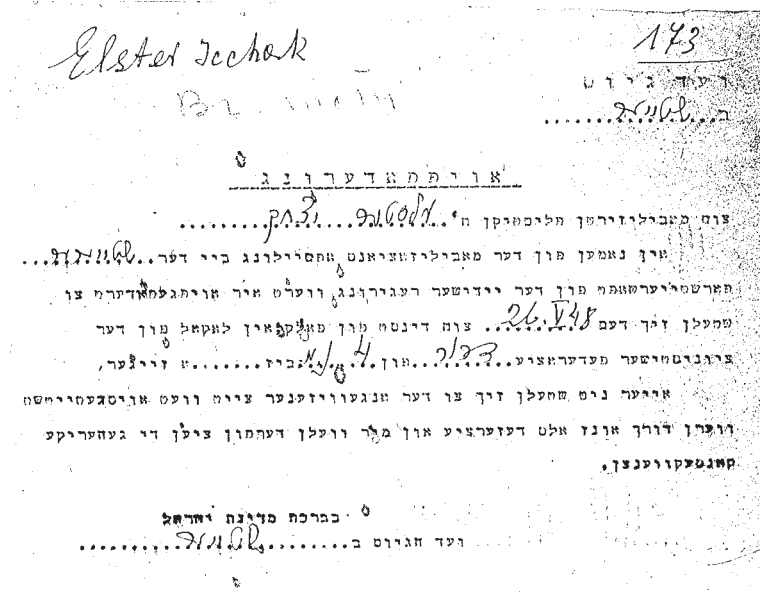 Elster Icchok
173
ועד גיוס
ב...
אויפפאדערונג
צום מאביליזירטן חליפטיקן ח' עלסטער יצחק
אין נאמען פון דער מאביליזאציאנס אפטיילונג ביי דער
פארשטייערשאפט פון דער יידישער רעגירונג ווערט איר אויפגעפאדערט צו
שטעלן זיך דעם 26.V.48 צום דינסט פון פאלק אין לאקאל פון דער
ציוניסטישער פעדעראציע פון 4 ביז א זייגער,
אייער ניט שטעלן זיך צו דער אנגעוויזענער צייט וועט אויסגעטייטשט
ווערן דורך אונז אלס דעזערציע און מיר וועלן דערפון ציען די געהעריקע
קאנסעקווענצן.
בברכת מדינת ישראל
ועד הגיוס ב...